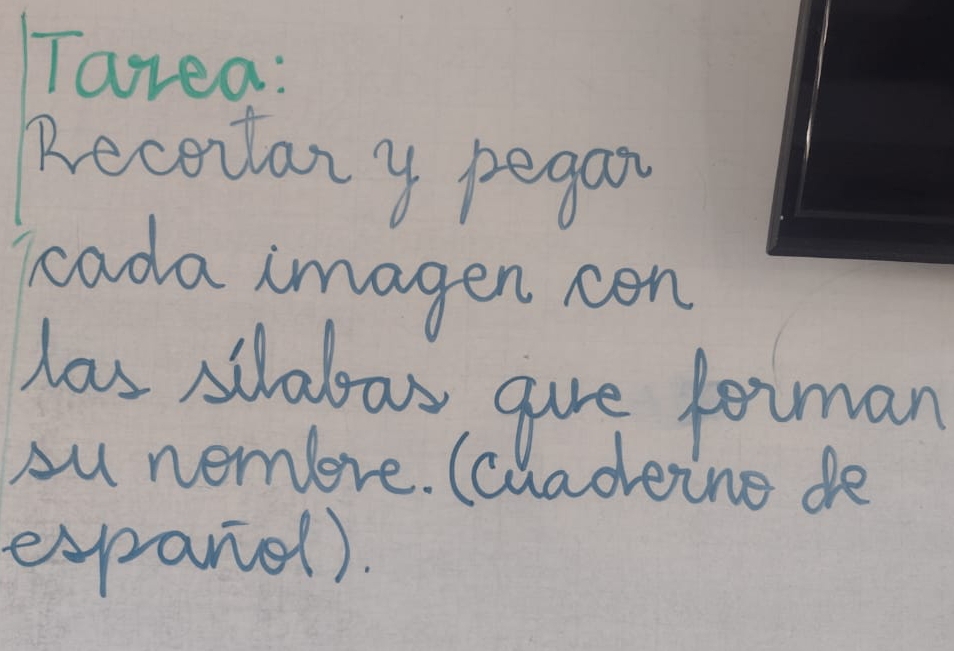 Tarea:
Recortar y pegar
cada imagen con
las sílabas que forman
su nombre. (Cuaderno de
español).